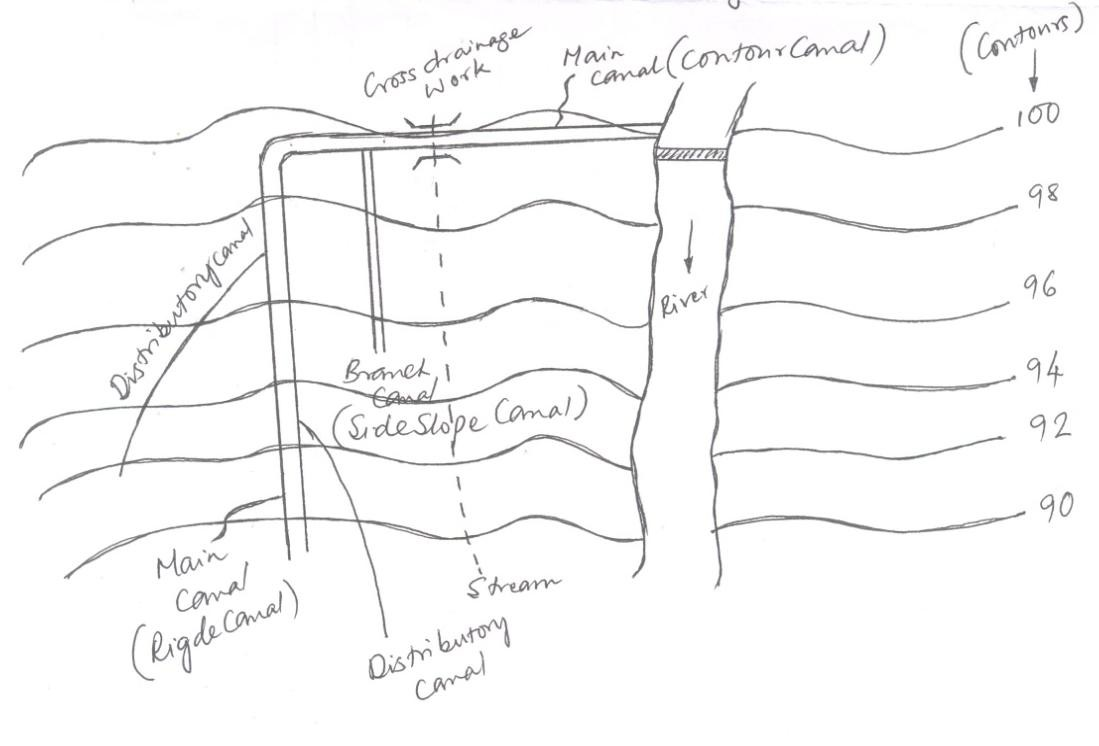 Cross drainage
Work
Main
Canal (Contour Canal)
(Contours)
100
98
96
94
92
90
Distributory Canal
River
Branch
Canal
(Side Slope Canal)
Main
Canal
(Rigde Canal)
Stream
Distributory
Canal